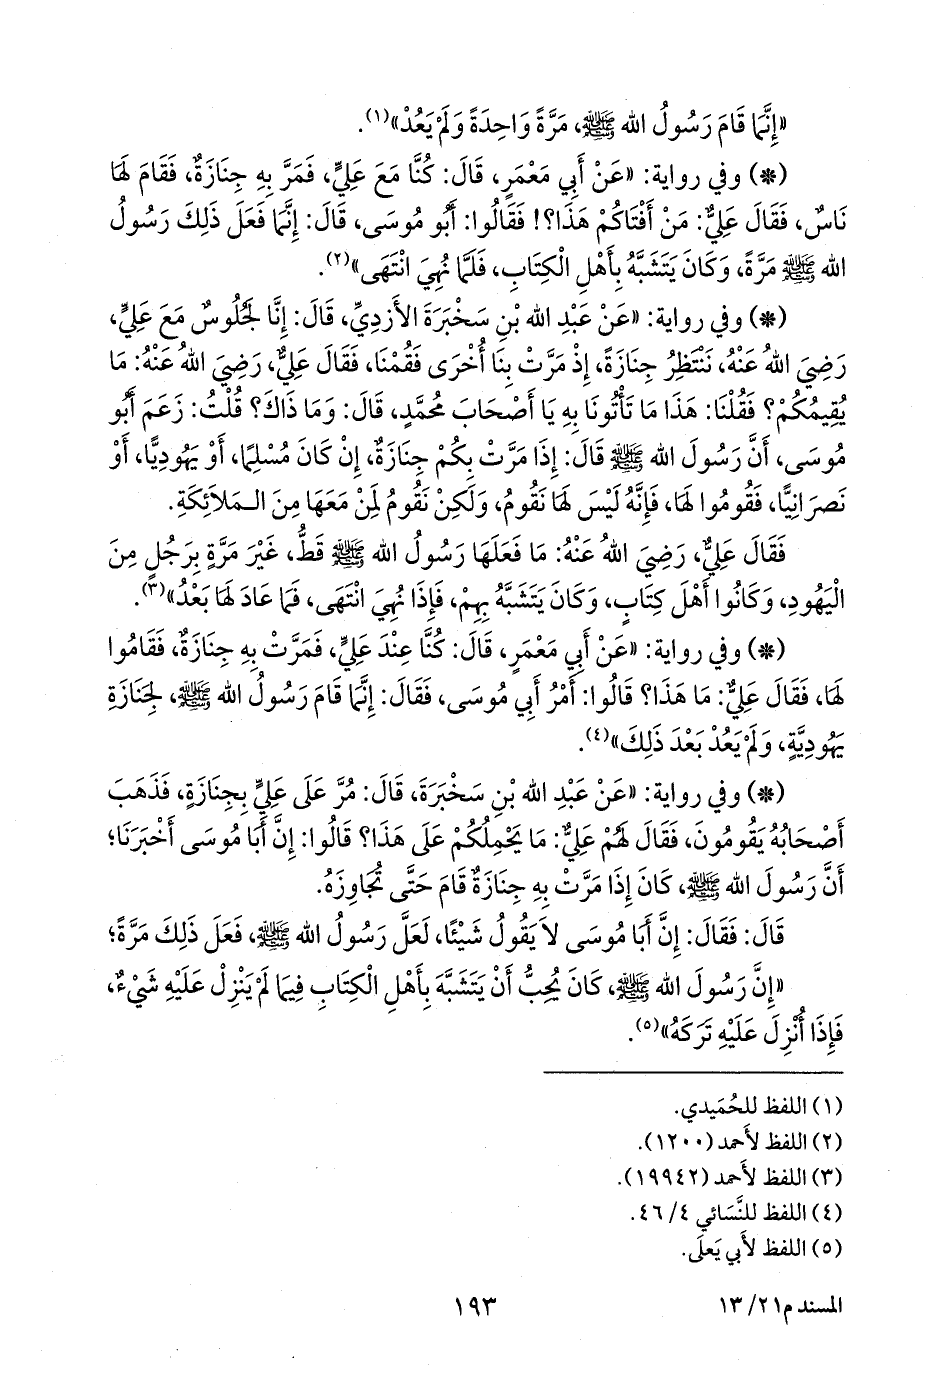 «إِنَّمَا قَامَ رَسُولُ الله ﷺ، مَرَّةً وَاحِدَةً وَلَمْ يَعُدْ»(١).
(*) وفي رواية: «عَنْ أَبِي مَعْمَرٍ، قَالَ: كُنَّا مَعَ عَلِيٍّ، فَمَرَّ بِهِ جِنَازَةٌ، فَقَامَ لَهَا
نَاسٌ، فَقَالَ عَلِيٌّ: مَنْ أَفْتَاكُمْ هَذَا؟! فَقَالُوا: أَبُو مُوسَى، قَالَ: إِنَّمَا فَعَلَ ذَلِكَ رَسُولُ
الله ﷺ مَرَّةً، وَكَانَ يَتَشَبَّهُ بِأَهْلِ الْكِتَابِ، فَلَمَّا نُهِيَ انْتَهَى»(٢).
(*) وفي رواية: «عَنْ عَبْدِ الله بْنِ سَخْبَرَةَ الأَزْدِيِّ، قَالَ: إِنَّا لَجُلُوسٌ مَعَ عَلِيٍّ،
رَضِيَ اللهُ عَنْهُ، نَنْتَظِرُ جِنَازَةً، إِذْ مَرَّتْ بِنَا أُخْرَى فَقُمْنَا، فَقَالَ عَلِيٌّ، رَضِيَ اللهُ عَنْهُ: مَا
يُقِيمُكُمْ؟ فَقُلْنَا: هَذَا مَا تَأْتُونَا بِهِ يَا أَصْحَابَ مُحَمَّدٍ، قَالَ: وَمَا ذَاكَ؟ قُلْتُ: زَعَمَ أَبُو
مُوسَى، أَنَّ رَسُولَ الله ﷺ قَالَ: إِذَا مَرَّتْ بِكُمْ جِنَازَةٌ، إِنْ كَانَ مُسْلِمًا، أَوْ يَهُودِيًّا، أَوْ
نَصرَانِيًّا، فَقُومُوا لَهَا، فَإِنَّهُ لَيْسَ لَهَا نَقُومُ، وَلَكِنْ نَقُومُ لِمَنْ مَعَهَا مِنَ الـمَلاَئِكَةِ.
فَقَالَ عَلِيٌّ، رَضِيَ اللهُ عَنْهُ: مَا فَعَلَهَا رَسُولُ الله ﷺ قَطُّ، غَيْرَ مَرَّةٍ بِرَجُلٍ مِنَ
الْيَهُودِ، وَكَانُوا أَهْلَ كِتَابٍ، وَكَانَ يَتَشَبَّهُ بِهِمْ، فَإِذَا نُهِيَ انْتَهَى، فَمَا عَادَ لَهَا بَعْدُ»(٣).
(*) وفي رواية: «عَنْ أَبِي مَعْمَرٍ، قَالَ: كُنَّا عِنْدَ عَلِيٍّ، فَمَرَّتْ بِهِ جِنَازَةٌ، فَقَامُوا
لَهَا، فَقَالَ عَلِيٌّ: مَا هَذَا؟ قَالُوا: أَمْرُ أَبِي مُوسَى، فَقَالَ: إِنَّمَا قَامَ رَسُولُ الله ﷺ، لِجَنَازَةِ
يَهُودِيَّةٍ، وَلَمْ يَعُدْ بَعْدَ ذَلِكَ»(٤).
(*) وفي رواية: «عَنْ عَبْدِ الله بْنِ سَخْبَرَةَ، قَالَ: مُرَّ عَلَى عَلِيٍّ بِجِنَازَةٍ، فَذَهَبَ
أَصْحَابُهُ يَقُومُونَ، فَقَالَ لَهُمْ عَلِيٌّ: مَا يَحْمِلُكُمْ عَلَى هَذَا؟ قَالُوا: إِنَّ أَبَا مُوسَى أَخْبَرَنَا؛
أَنَّ رَسُولَ الله ﷺ، كَانَ إِذَا مَرَّتْ بِهِ جِنَازَةٌ قَامَ حَتَّى تُجَاوِزَهُ.
قَالَ: فَقَالَ: إِنَّ أَبَا مُوسَى لاَ يَقُولُ شَيْئًا، لَعَلَّ رَسُولُ الله ﷺ، فَعَلَ ذَلِكَ مَرَّةً؛
«إِنَّ رَسُولَ الله ﷺ، كَانَ يُحِبُّ أَنْ يَتَشَبَّهَ بِأَهْلِ الْكِتَابِ فِيمَا لَمْ يَنْزِلْ عَلَيْهِ شَيْءٌ،
فَإِذَا أُنْزِلَ عَلَيْهِ تَرَكَهُ»(٥).
(١) اللفظ للحُمَيدي.
(٢) اللفظ لأَحمد (١٢٠٠).
(٣) اللفظ لأَحمد (١٩٩٤٢).
(٤) اللفظ للنَّسَائي ٤/ ٤٦.
(٥) اللفظ لأَبي يَعلَى.
المسند م٢١/ ١٣
١٩٣